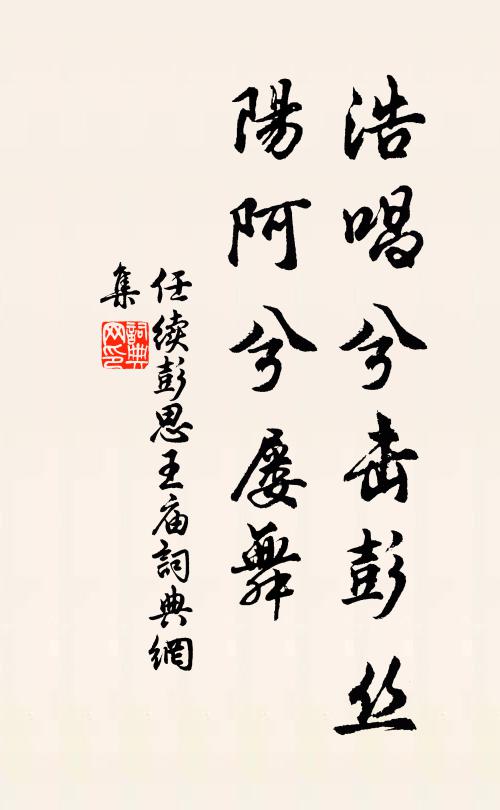 浩唱兮击彭丝
陽阿兮屡舞
任续彭思王庙詞典網
集
詞典网印